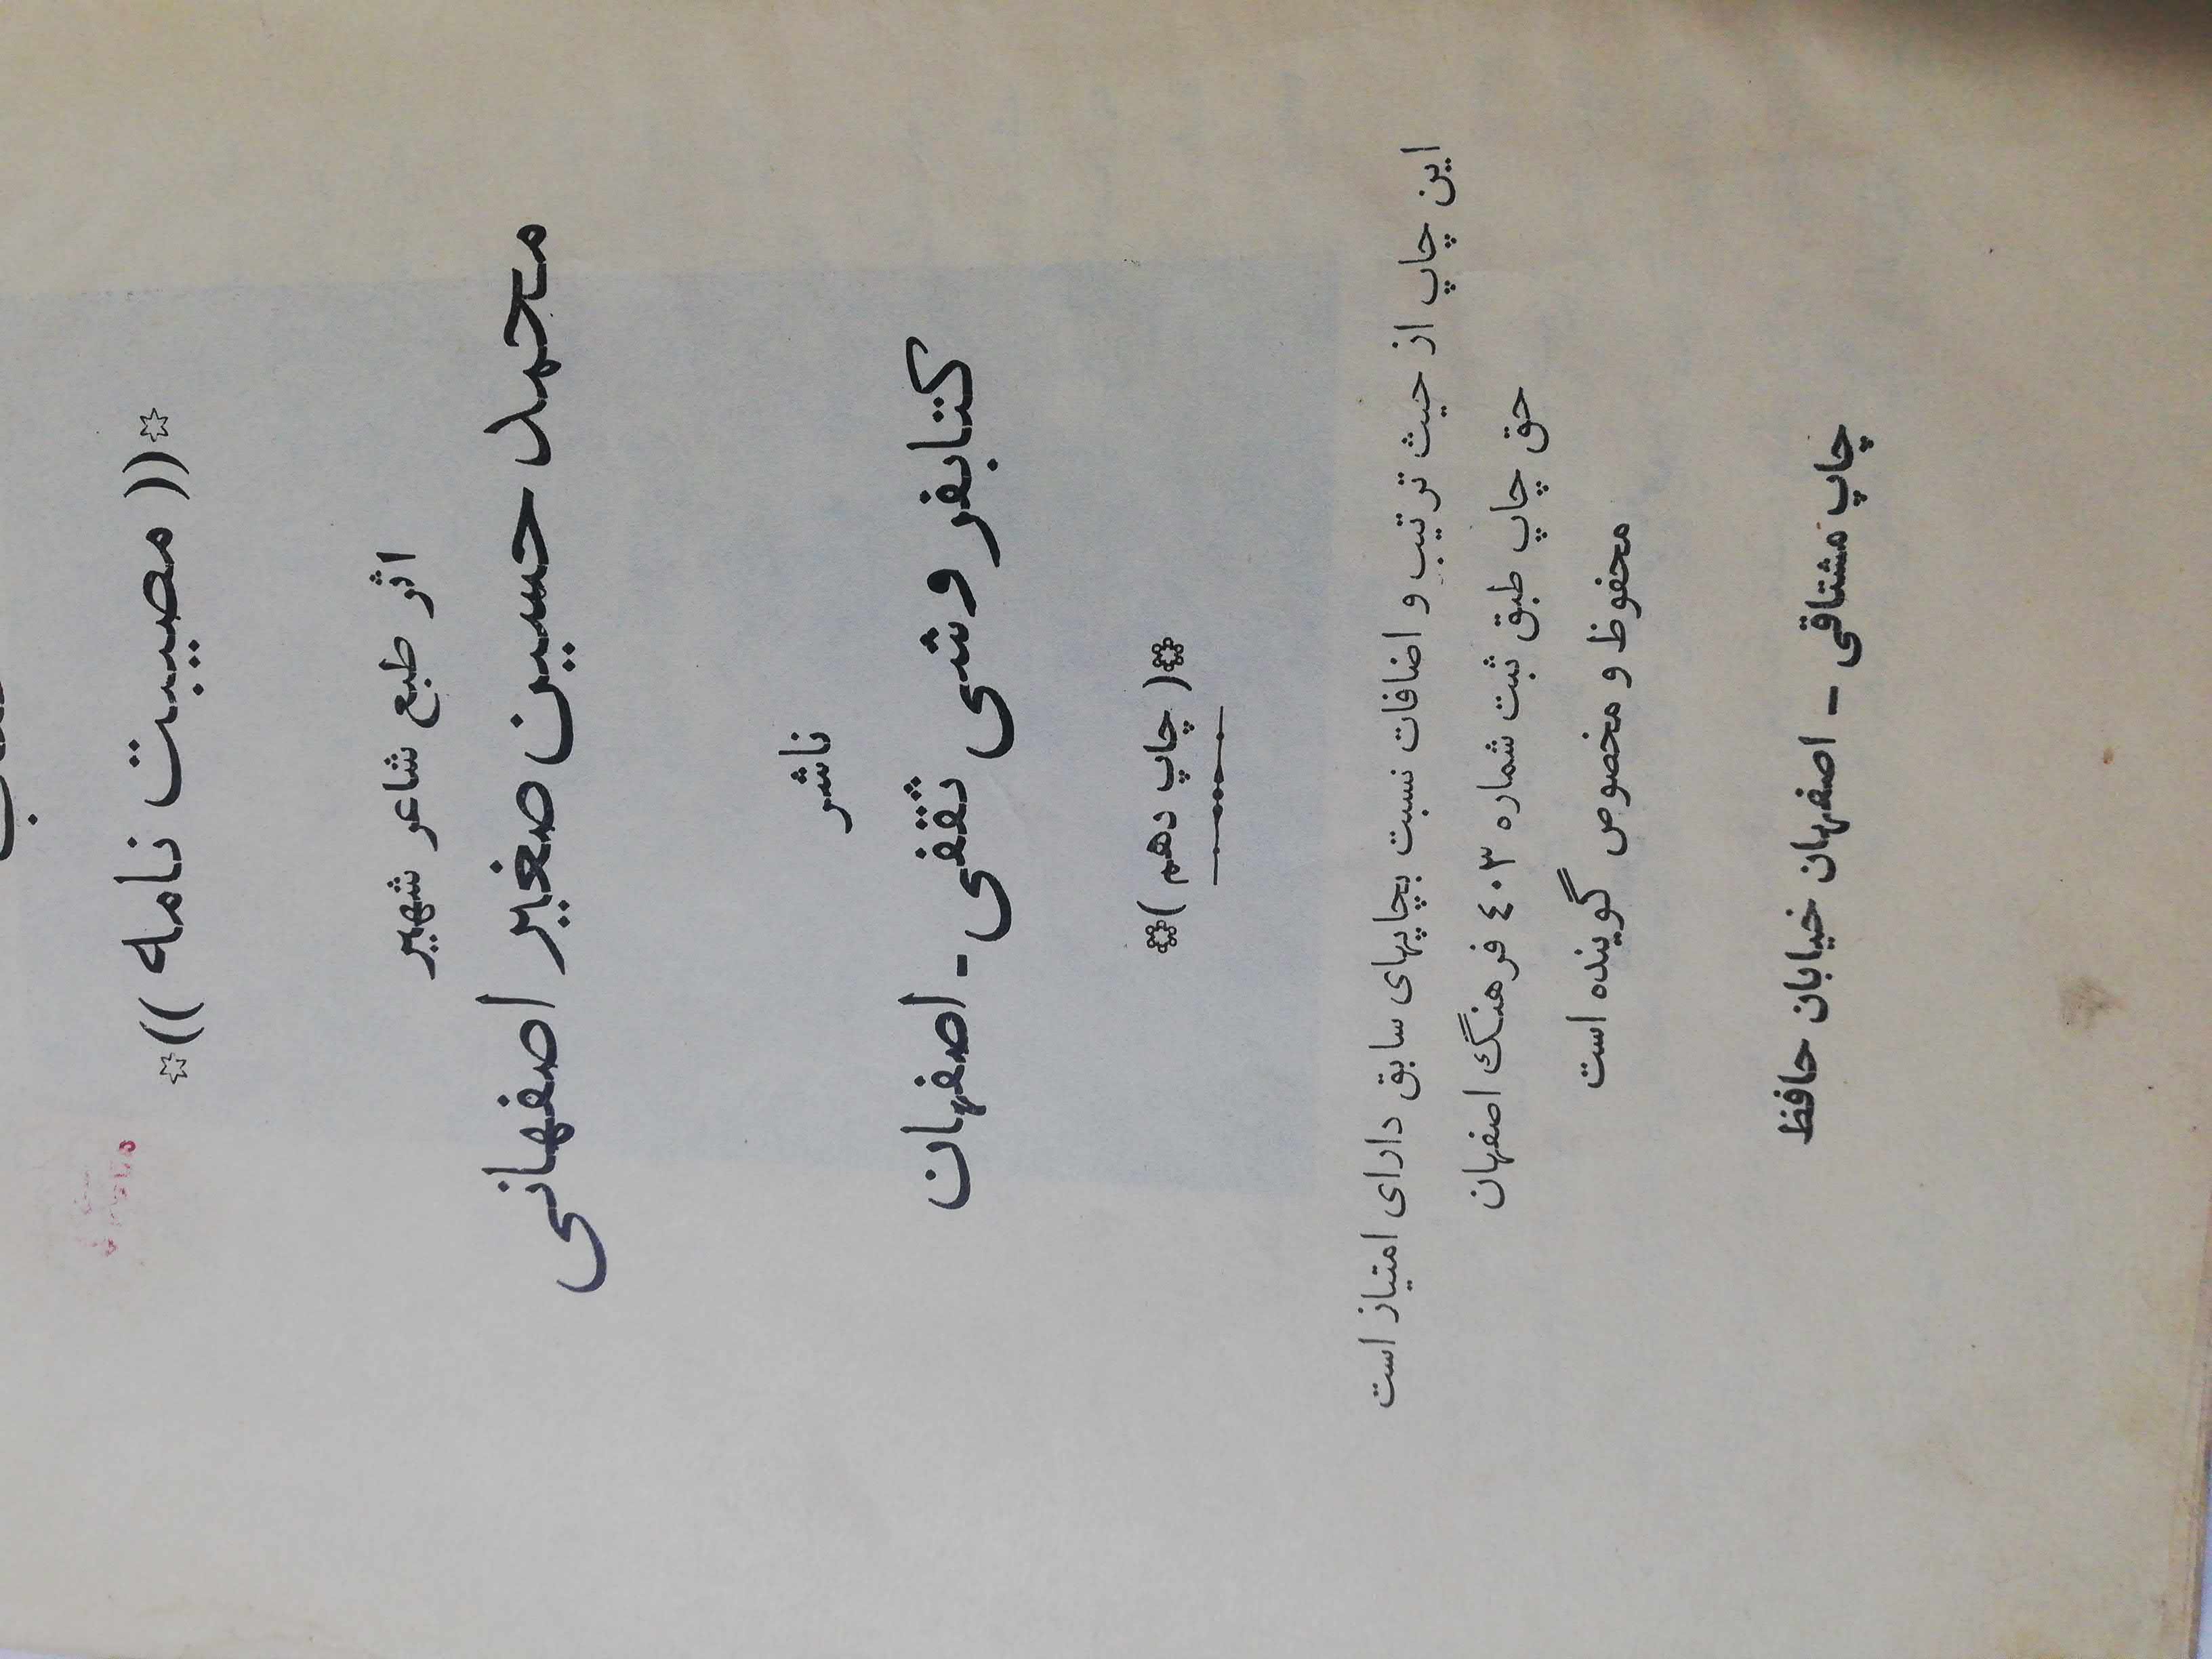 ☆(( مصیبت نامه ))☆
اثر طبع شاعر شهیر
محمد حسین صغیر اصفهانی
ناشر
کتابفروشی ثقفی - اصفهان
( چاپ دهم )
این چاپ از حیث ترتیب و اضافات نسبت بچاپهای سابق دارای امتیاز است
حق چاپ طبق ثبت شماره ٤٠٣ فرهنگ اصفهان
محفوظ و مخصوص گوینده است
چاپ مشتاقی - اصفهان خیابان حافظ